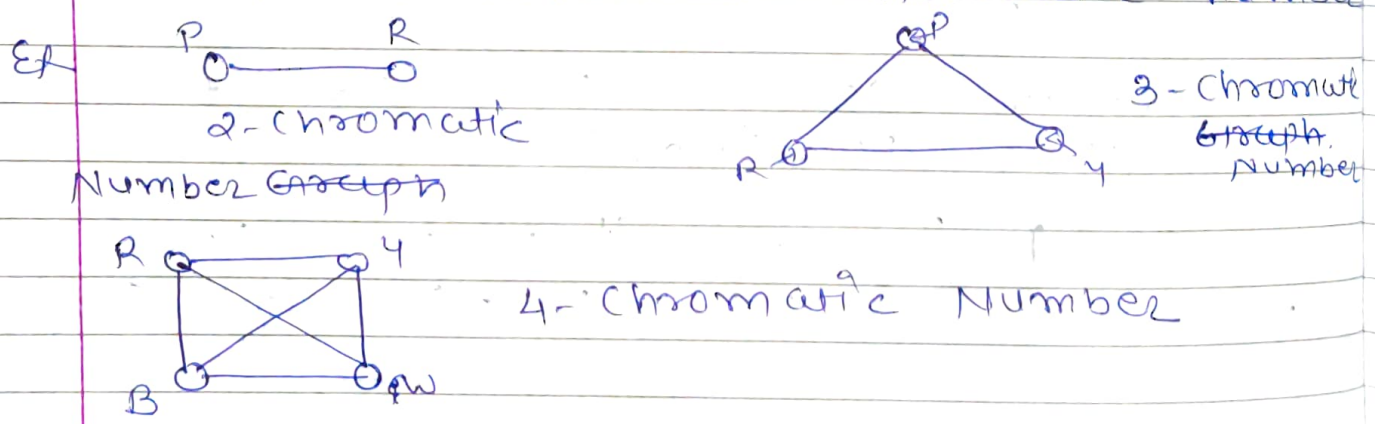 Ex
P R
2-Chromatic
Number Graph
P
R Y
3-Chromati
Graph.
Number
R Y
B W
4-Chromatic Number